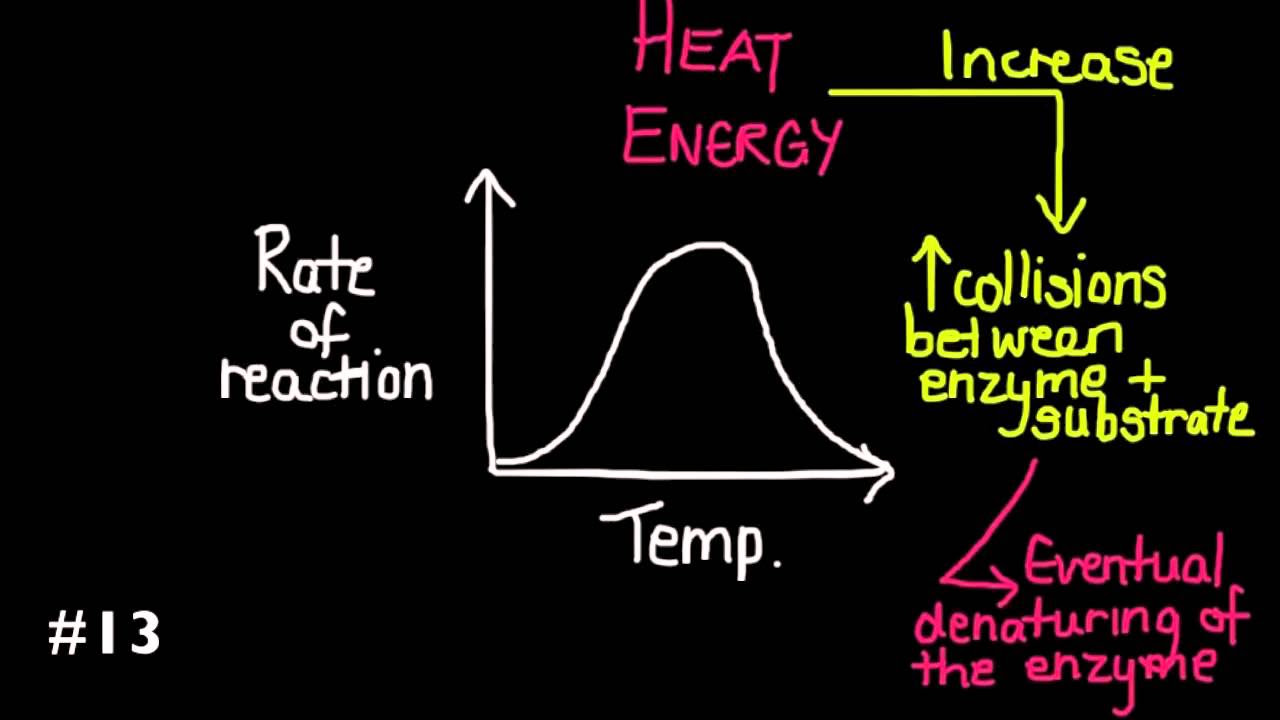 HEAT
ENERGY
Increase
Rate
of
reaction
Temp.
↑ collisions
between
enzyme +
substrate
Eventual
denaturing of
the enzyme
#13